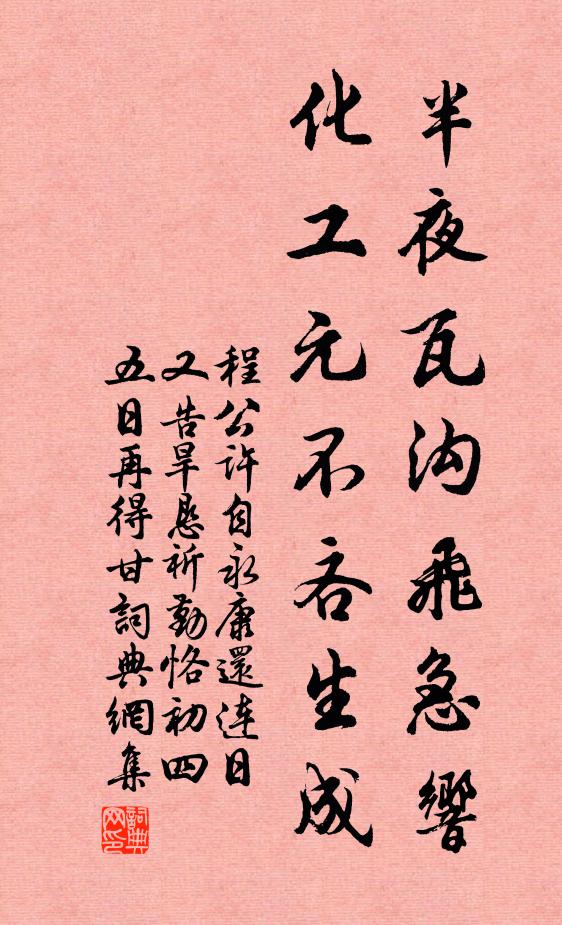 半夜瓦沟飛急響
化工元不吝生成
程公許自永康還连日
又告旱恳祈勤恪初四
五日再得甘詞典網集
詞典
网印